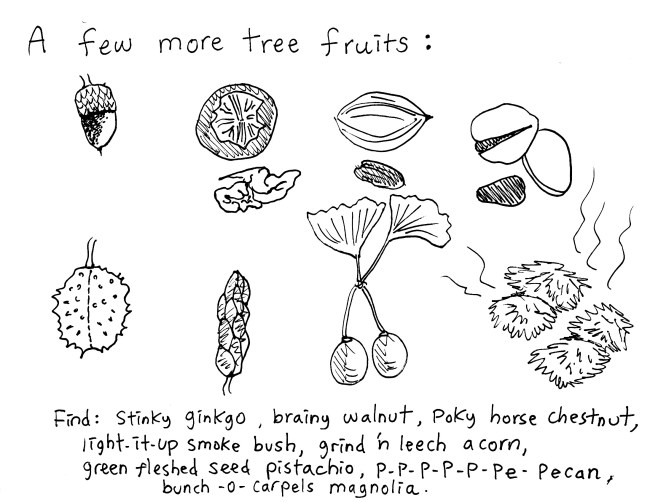 A few more tree fruits :
Find: Stinky ginkgo, brainy walnut, Poky horse chestnut,
light-it-up smoke bush, grind 'n leech acorn,
green fleshed seed pistachio, P-P-P-P-P-Pe- Pecan,
bunch -o- carpels magnolia.